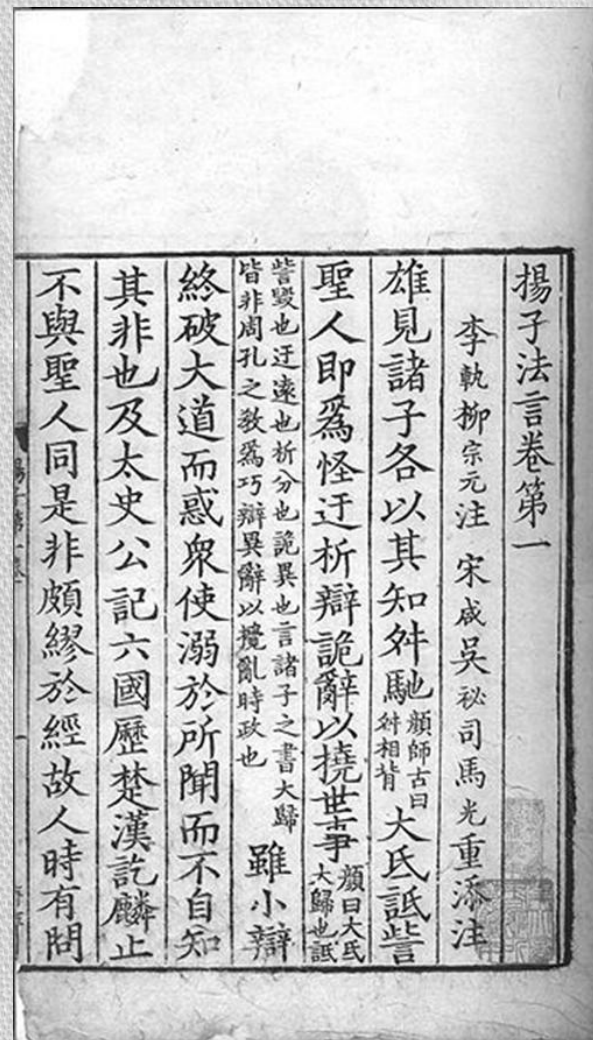 揚子法言卷第一
李軌柳宗元注 宋咸吳祕司馬光重添注
雄見諸子各以其知舛馳顏師古曰舛相背大氐詆訾
聖人即爲怪迂析辯詭辭以撓世事顏曰大氐大歸也詆
訾毀也迂遠也析分也詭異也言諸子之書大歸皆非周孔之敎爲巧辯異辭以攪亂時政也雖小辯
終破大道而惑衆使溺於所聞而不自知
其非也及太史公記六國歷楚漢訖麟止
不與聖人同是非頗繆於經故人時有問